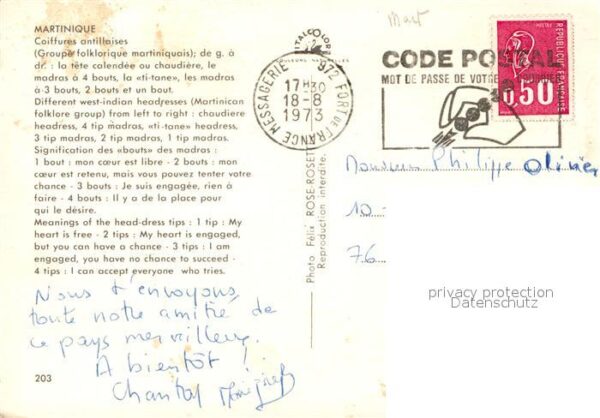 MARTINIQUE
Coiffures antillaises
(Groupe folklorique martiniquais); de g. à
dr. : la tête calendée ou chaudière, le
madras à 4 bouts, la «ti-tane», les madras
à 3 bouts, 2 bouts et un bout.
Different west-indian headresses (Martinican
folklore group) from left to right : chaudiere
headress, 4 tip madras, «ti-tane» headress,
3 tip madras, 2 tip madras, 1 tip madras.
Signification des «bouts» des madras :
1 bout : mon cœur est libre - 2 bouts : mon
cœur est retenu, mais vous pouvez tenter votre
chance - 3 bouts : Je suis engagée, rien à
faire - 4 bouts : Il y a de la place pour
qui le désire.
Meanings of the head-dress tips : 1 tip : My
heart is free - 2 tips : My heart is engaged,
but you can have a chance - 3 tips : I am
engaged, you have no chance to succeed -
4 tips : I can accept everyone who tries.
Nous t'envoyons
toute notre amitié de
ce pays merveilleux.
A bientôt !
Chantal
203
Photo Félix ROSE-ROSET
Reproduction interdite.
972 FORT DE FRANCE MESSAGERIE
17H30
18-8
1973
CODE POSTAL
MOT DE PASSE DE VOTRE COURRIER
0,50
Monsieur Philippe Olivier
10
76
privacy protection
Datenschutz